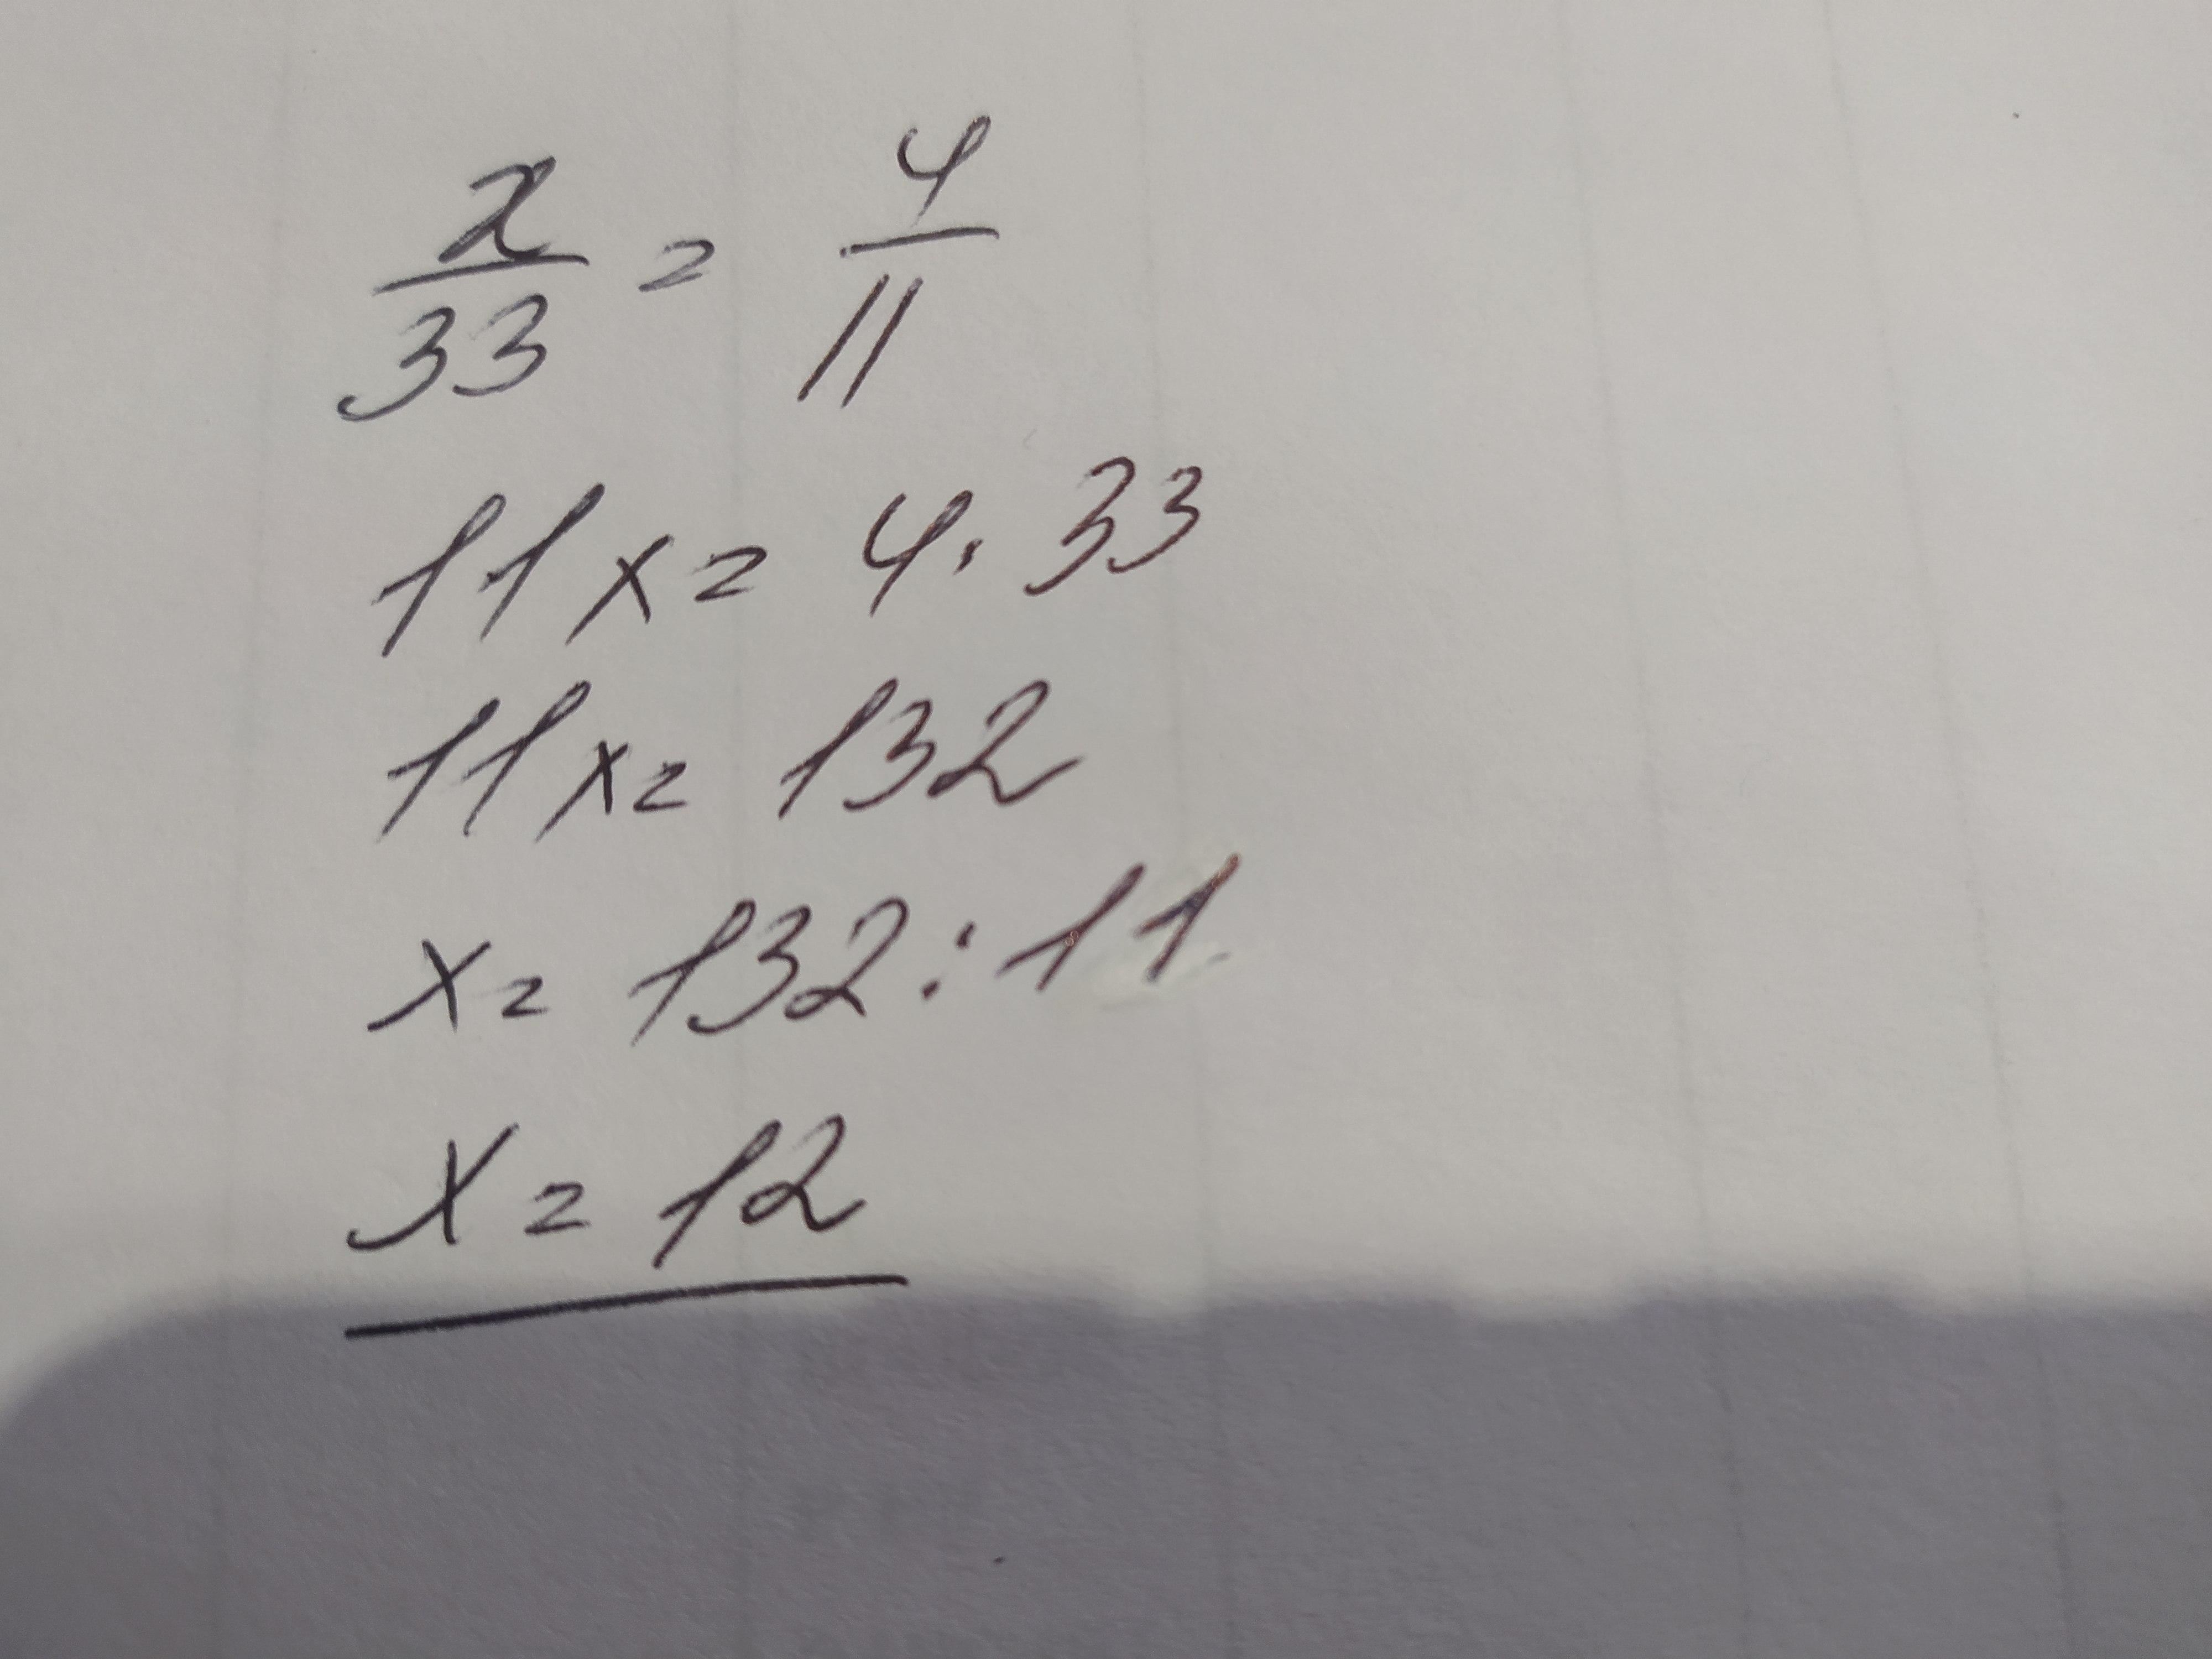 x/33 = 4/11
11x = 4 · 33
11x = 132
x = 132 : 11
x = 12